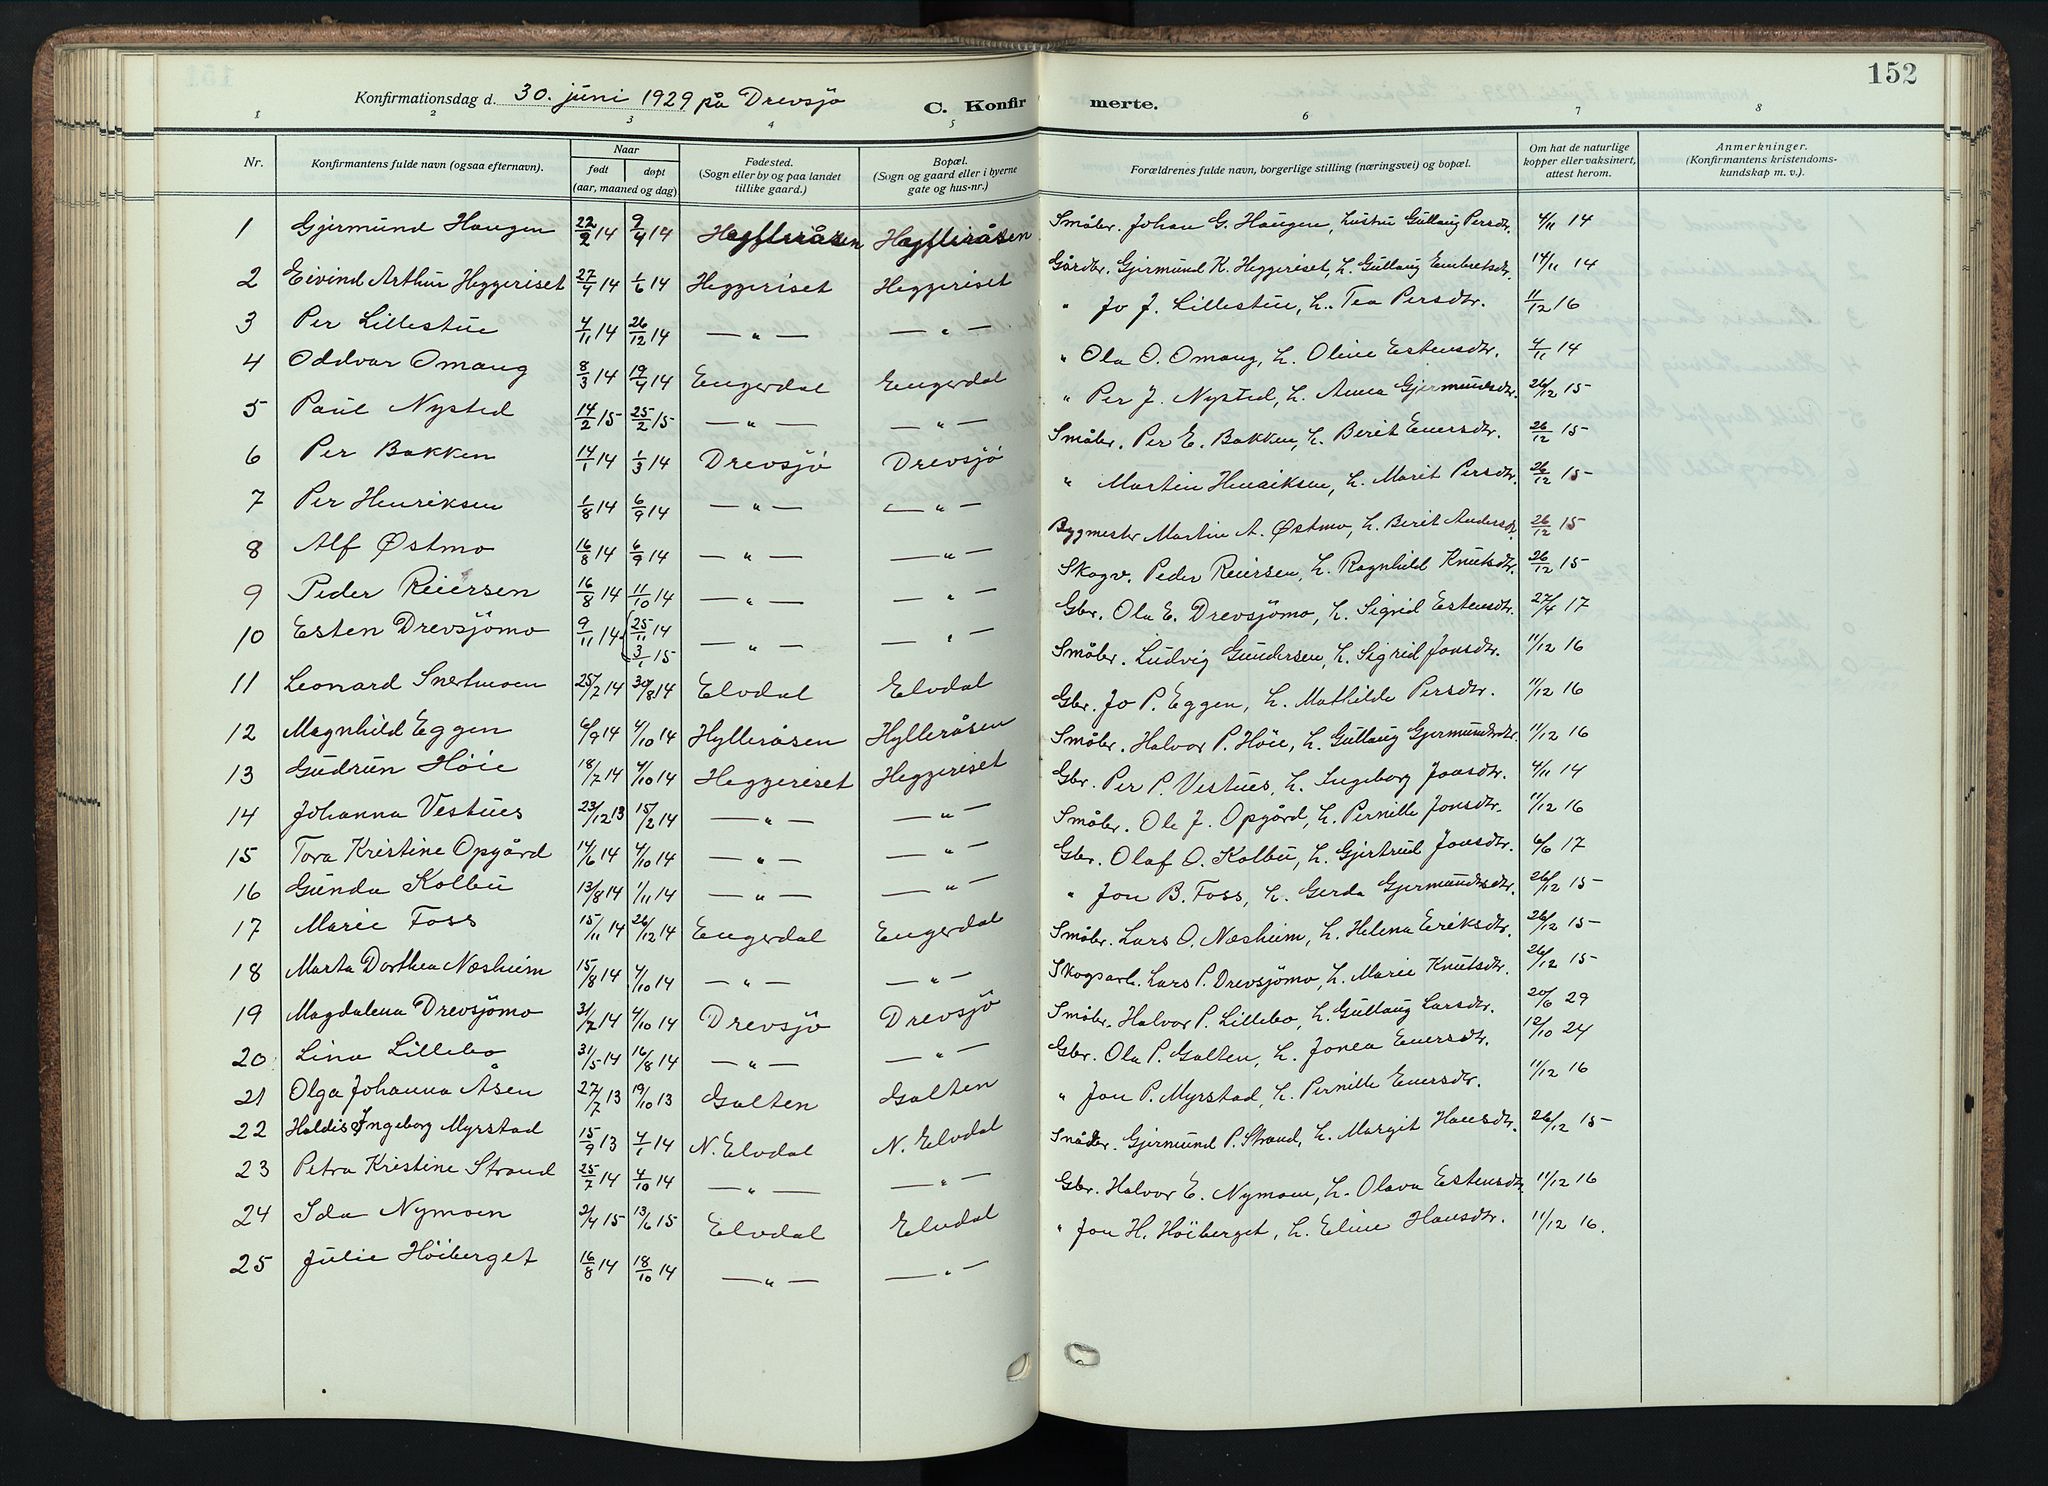 152
Konfirmationsdag d. 30. juni 1929 på Drevsjø
C. Konfirmerte.
1 2 3 4 5 6 7 8
Nr. | Konfirmantens fulde navn (ogsaa efternavn). | Naar født døpt (aar, maaned og dag) | Fødested. (Sogn eller by og paa landet tillike gaard.) | Bopæl. (Sogn og gaard eller i byerne gate og hus-nr.) | Forældrenes fulde navn, borgerlige stilling (næringsvei) og bopæl. | Om hat de naturlige kopper eller vaksinert, attest herom. | Anmerkninger. (Konfirmantens kristendomskundskap m. v.).
1 Gjermund Haugen 22/2 14 9/4 14 Hylleråsen Hylleråsen Småbr. Johan G. Haugen, Hustru Gullaug Persdtr. 4/11 14
2 Eivind Arthur Heggeriset 27/4 14 1/6 14 Heggeriset Heggeriset Gårdbr. Gjermund K. Heggeriset, h. Gullaug Embretsdtr. 14/11 14
3 Per Lillestue 4/11 14 26/12 14 — " — — " — " Jo J. Lillestue, h. Tea Persdtr. 11/12 16
4 Oddvar Omang 8/3 14 19/4 14 Engerdal Engerdal " Ola O. Omang, h. Oline Estensdtr. 4/11 14
5 Paul Nysted 14/2 15 25/2 15 — " — — " — " Per J. Nysted, h. Anna Gjermundsdtr. 26/12 15
6 Per Bakken 14/1 14 1/3 14 Drevsjö Drevsjö Småbr. Per E. Bakken, h. Berit Enersdtr. 26/12 15
7 Per Henriksen 1/8 14 6/9 14 — " — — " — " Martin Henriksen, h. Marit Persdtr. 26/12 15
8 Alf Østmo 16/8 14 6/9 14 — " — — " — Bygmester Martin A. Østmo, h. Berit Andersdtr. 26/12 15
9 Peder Reiersen 16/8 14 11/10 14 — " — — " — Skogv. Peder Reiersen, h. Ragnhild Knutsdtr. 26/12 15
10 Esten Drevsjömo 9/11 14 25/11 14 3/1 15 — " — — " — Gbr. Ola E. Drevsjömo, h. Sigrid Estensdtr. 27/4 17
11 Leonard Snertmoen 25/7 14 30/8 14 Elvdal Elvdal Småbr. Ludvig Gundersen, h. Sigrid Jonsdtr. 11/12 16
12 Magnhild Eggen 6/9 14 4/10 14 Hylleråsen Hylleråsen Gbr. Jo P. Eggen, h. Mathilde Persdtr. 11/12 16
13 Gudrun Höie 18/7 14 4/10 14 Heggeriset Heggeriset Småbr. Halvor P. Höie, h. Gullaug Gjermundsdtr. 11/12 16
14 Johanna Vestues 23/12 13 15/2 14 — " — — " — Gbr. Per P. Vestues, h. Ingeborg Jonsdtr. 4/11 14
15 Tora Kristine Opgård 14/6 14 4/10 14 — " — — " — Småbr. Ole J. Opgård, h. Pernille Jonsdtr. 11/12 16
16 Gunda Kolbu 13/8 14 1/11 14 — " — — " — Gbr. Olaf O. Kolbu, h. Gjertrud Jonsdtr. 6/6 17
17 Marie Foss 15/11 14 26/12 14 Engerdal Engerdal " Jon B. Foss, h. Gerda Gjermundsdtr. 26/12 15
18 Marta Dorthea Næsheim 15/8 14 4/10 14 — " — — " — Småbr. Lars O. Næsheim, h. Helena Eriksdtr. 26/12 15
19 Magdalena Drevsjömo 31/7 14 4/10 14 Drevsjö Drevsjö Skogsarb. Lars P. Drevsjömo, h. Marie Knutsdtr. 26/12 15
20 Lina Lillebo 31/5 14 16/8 14 — " — — " — Småbr. Halvor P. Lillebo, h. Gullaug Larsdtr. 20/6 29
21 Olga Johanna Åsen 27/7 13 19/10 13 Galten Galten Gbr. Ola P. Galten, h. Jonea Enersdtr. 12/10 24
22 Haldis Ingeborg Myrstad 15/9 13 4/1 14 N. Elvdal N. Elvdal " Jon P. Myrstad, h. Pernille Enersdtr. 11/12 16
23 Petra Kristine Strand 25/7 14 4/10 14 — " — — " — Småbr. Gjermund P. Strand, h. Margit Hansdtr. 26/12 15
24 Ida Nymoen 2/4 15 13/6 15 Elvdal Elvdal Gbr. Halvor E. Nymoen, h. Olava Estensdtr. 11/12 16
25 Julie Höiberget 16/8 14 18/10 14 — " — — " — " Jon H. Höiberget, h. Eline Hansdtr. 11/12 16.